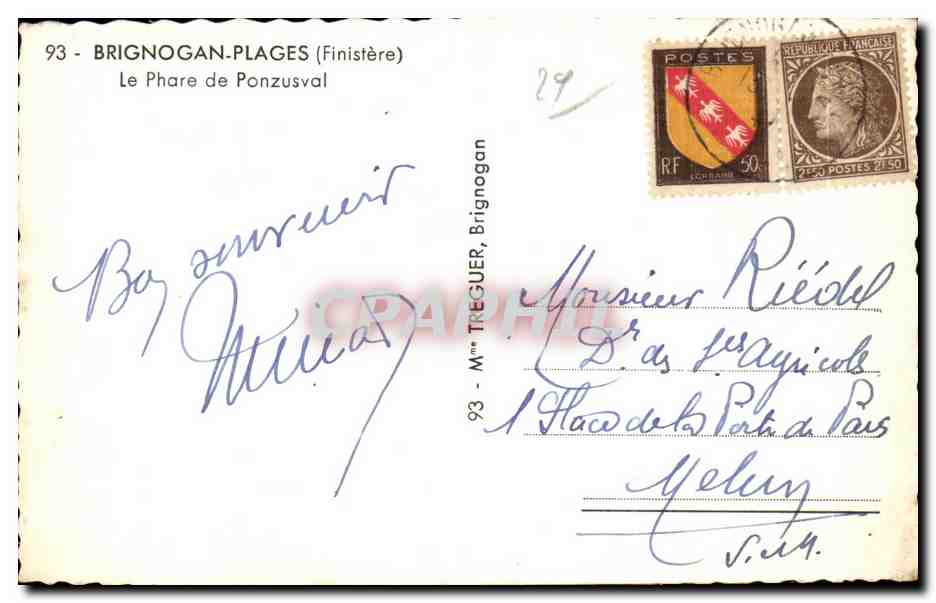 93 - BRIGNOGAN-PLAGES (Finistère)
Le Phare de Ponzusval
24
POSTES
RF 50c
LORRAINE
RÉPUBLIQUE FRANÇAISE
2F50 POSTES 2F50
Bon souvenir
93 - Mme TREGUER, Brignogan
CPAPHIL
Monsieur Riédel
Dr des Ses Agricoles
1 Place de la Porte de Paris
Melun
S. et M.